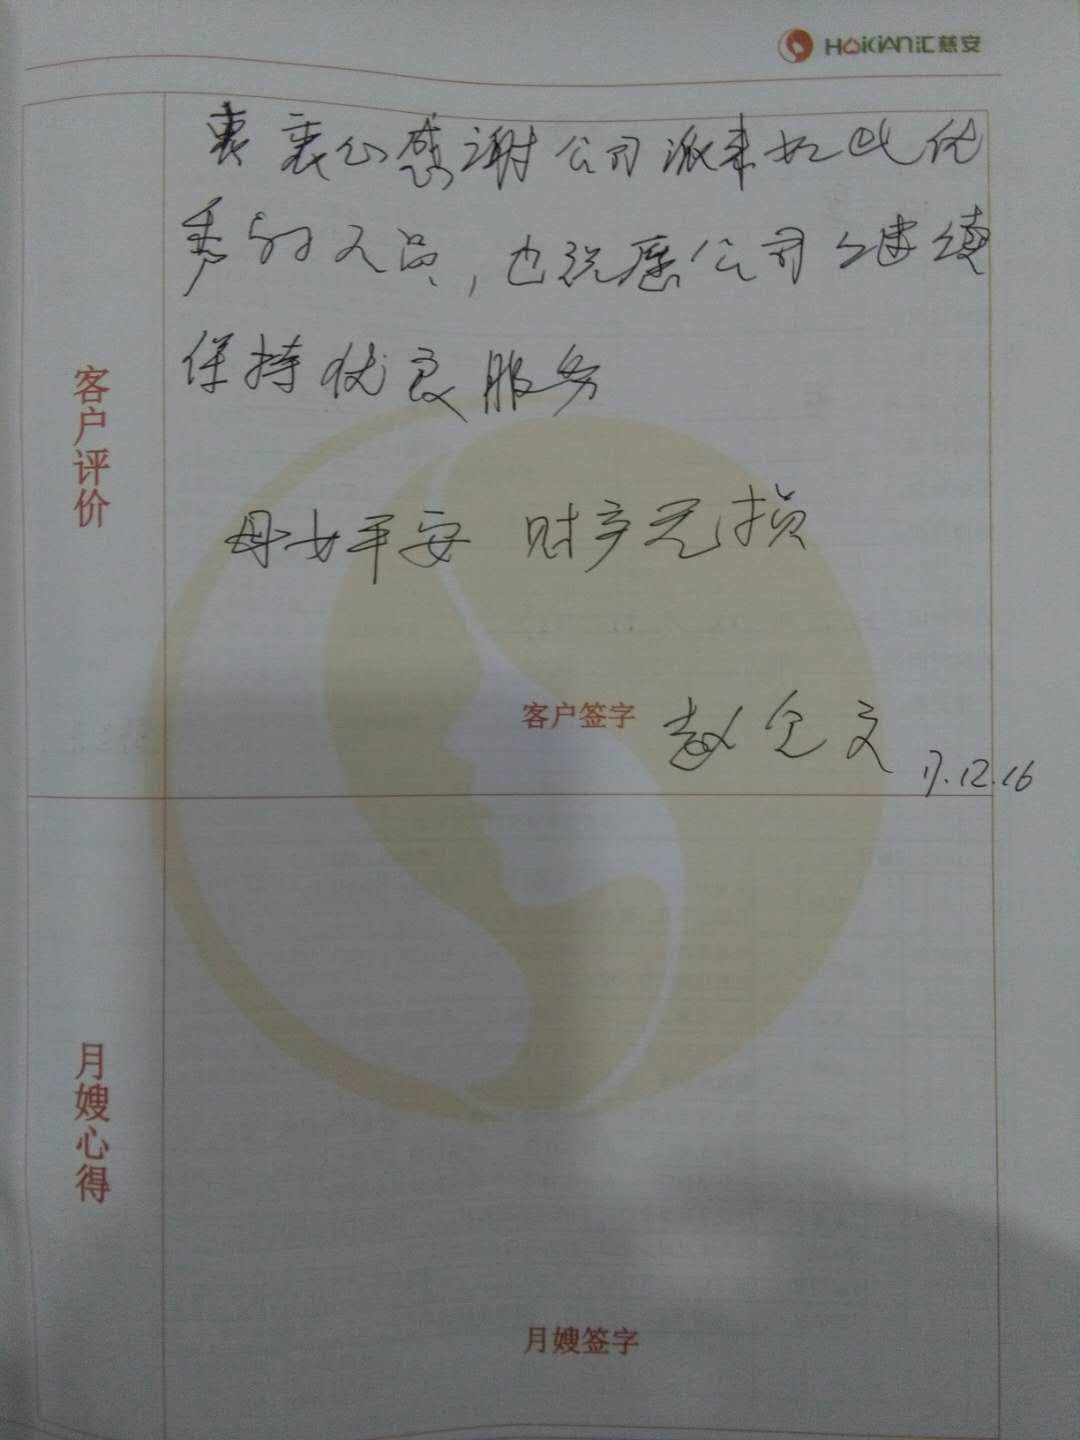 HOiKiAN汇慈安
衷衷心感谢公司派来如此优
秀的人员，也祝愿公司继续
保持优良服务
客户评价
母女平安 财产无损
客户签字 赵全文
17.12.16
月嫂心得
月嫂签字